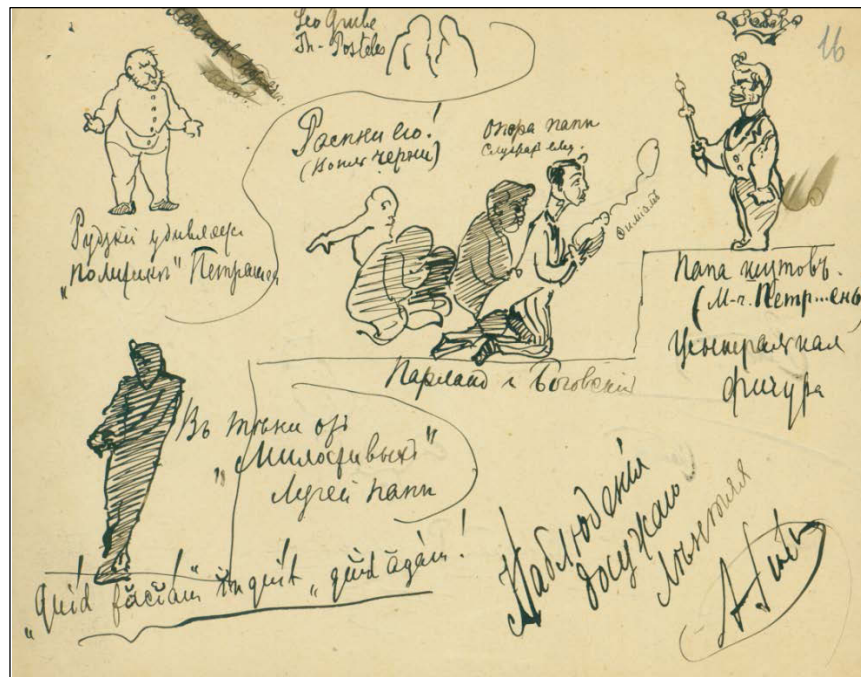 Leo Grube
Th-Posteles
16
Распни его!
(Вопли черни)
Опора папы
Фимiамъ
Рудзкiй удивляясь
„политикѣ" Петра
Папа шутовъ.
(М-ч. Петр...ень)
Центральная
фигура
Парланд и Боговскiй
Въ тѣни отъ
„Милостивыхъ"
Лучей папы
„Quid faciam" inquit „quid agam!
Наблюденiя
досужаго
Лѣнтяя